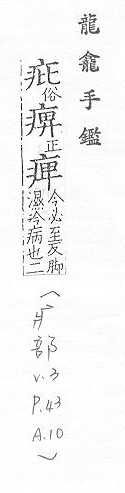 龍龕手鑑
疪俗痹正痺今必至反脚
濕冷病也二
(疒部
V.3
P.43
A.10)